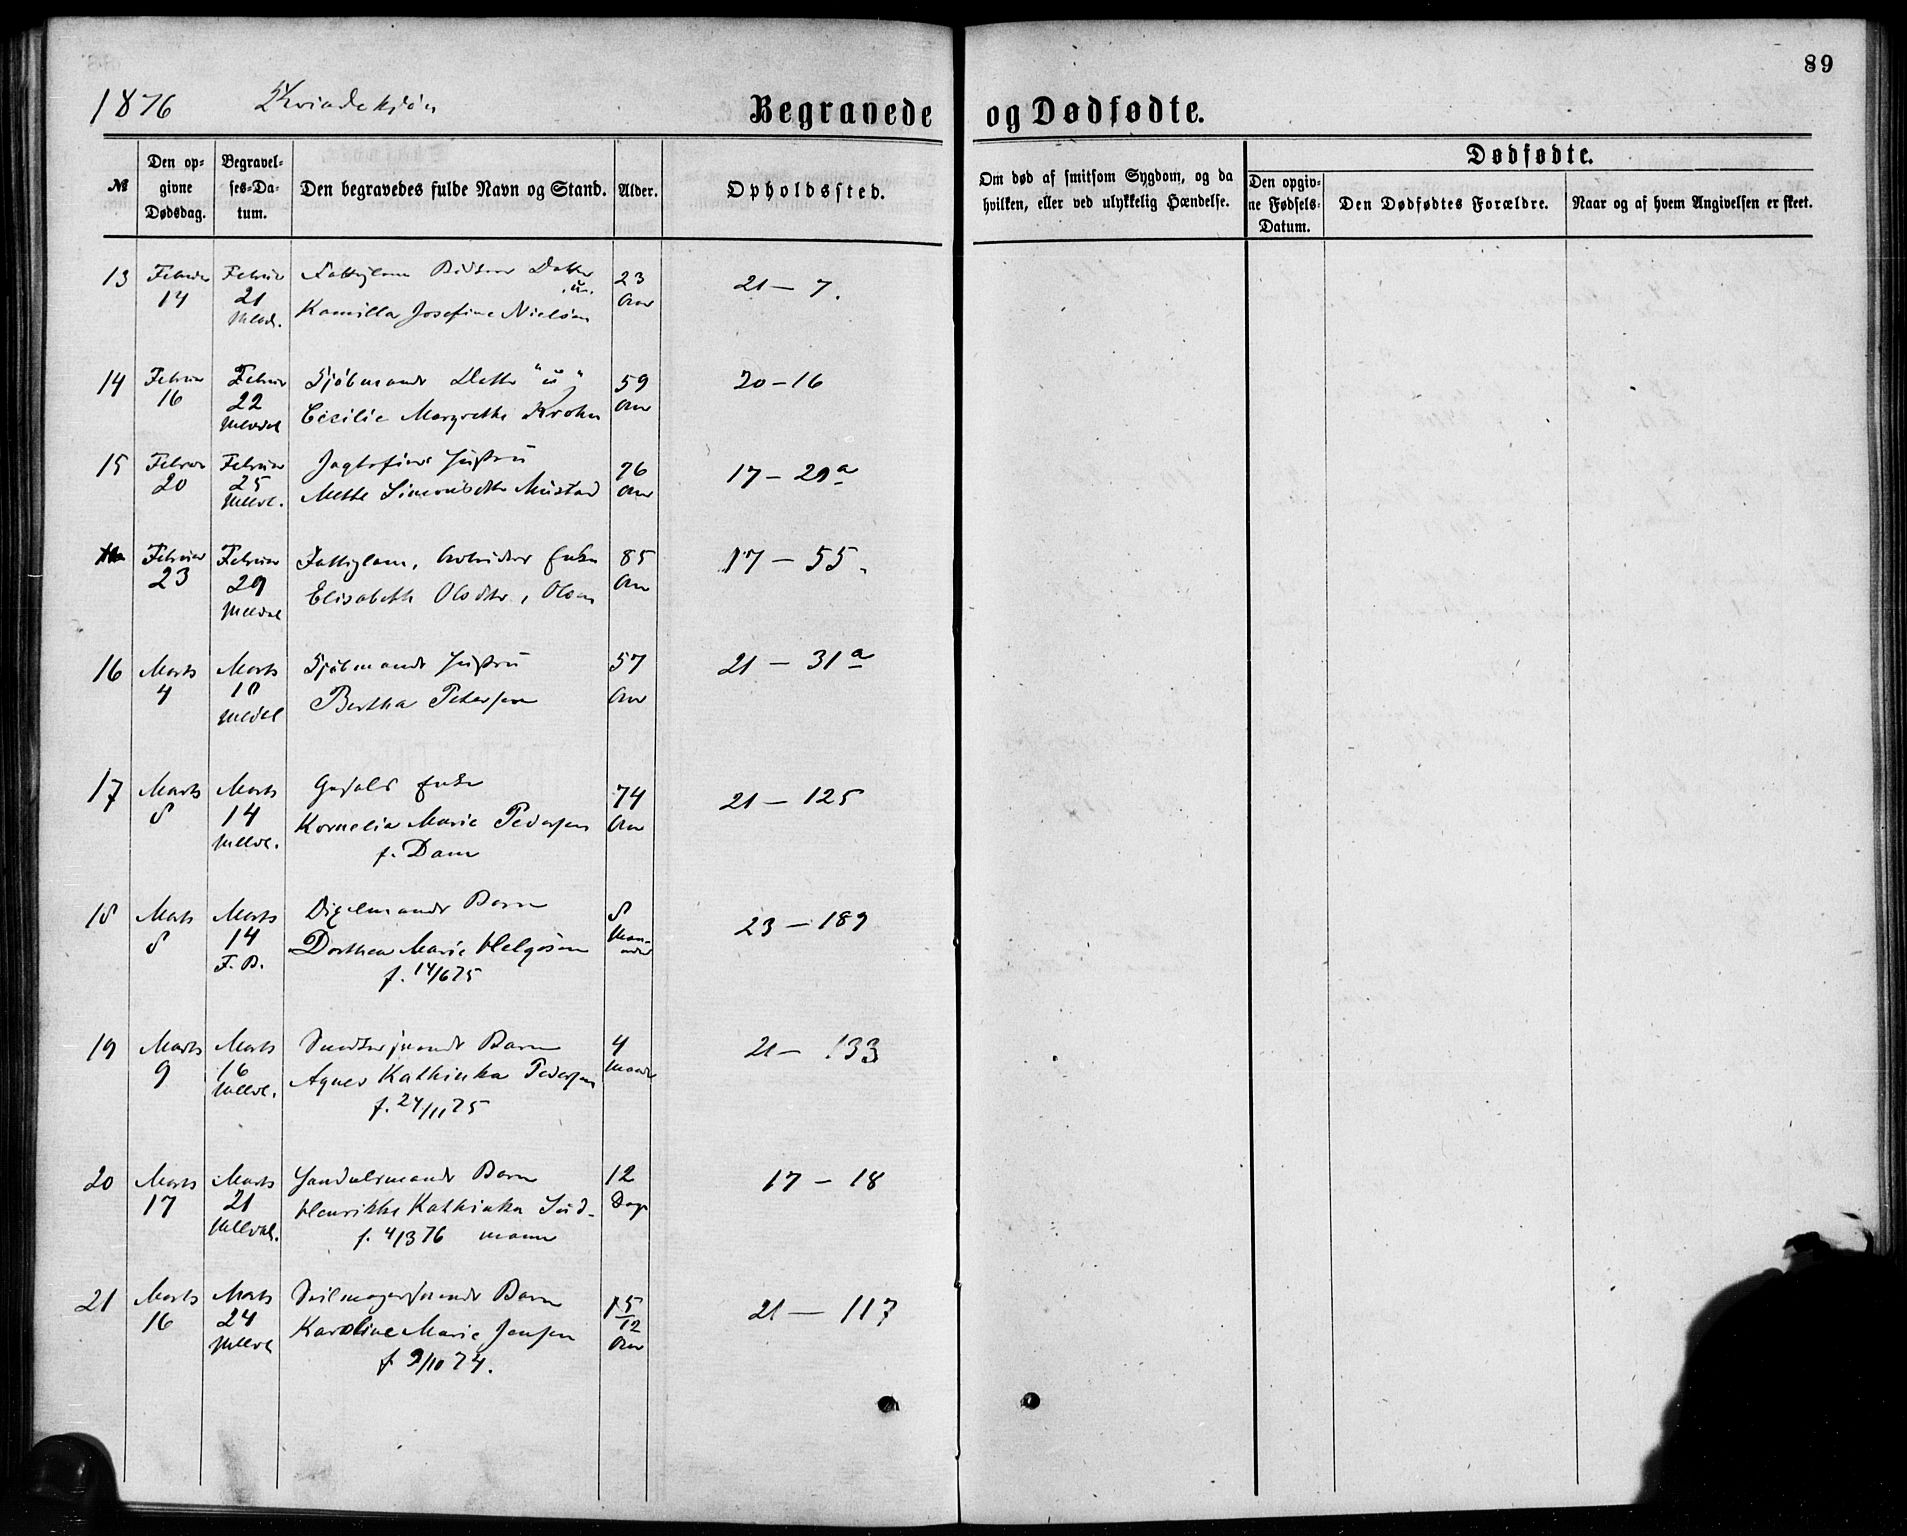 89
1876 Kvindekjøn
Begravede og Dødfødte.
№
Den opgivne Dødsdag.
Begravelses-Datum.
Den begravedes fulde Navn og Stand.
Alder.
Opholdssted.
Om død af smitsom Sygdom, og da hvilken, eller ved ulykkelig Hændelse.
Dødfødte.
Den opgivne Fødsels-Datum.
Den Dødfødtes Forældre.
Naar og af hvem Angivelsen er skeet.
13 Februar 14 Februar 21 Datter "u" 23 Aar 21 – 7.
Kamilla Josefine Nielsen
14 Februar 16 Februar 22 Sjøbmands Datter "u" 59 Aar 20 – 16
Cecilie Margrethe Krohn
15 Februar 20 Februar 25 Hustru 76 Aar 17 – 29a
Mette Simonsdtr Mustad
Februar 23 Februar 29 Fattiglem, Arbeiders Enke 85 Aar 17 – 55.
Elisabeth Olsdtr, Olsen
16 Marts 4 Marts 10 Hustru 57 Aar 21 – 31a
Bertha Petersen
17 Marts 8 Marts 14 Enke 74 Aar 21 – 125
Kornelia Marie Pedersen
f. Dam
18 Marts 8 Marts 14 F. B. Barn 8 Maaneder 23 – 189
Dorthea Marie Helgesen
f. 14/6 75
19 Marts 9 Marts 16 Barn 4 21 – 133
Agnes Kathinka Pedersen
f. 24/11 75
20 Marts 17 Marts 21 Handelsmands Barn 12 Dage 17 – 18
Henrikke Kathinka Sud-
f. 4/3 76 mann
21 Marts 16 Marts 24 Seilmagersvends Barn 1 5/12 Aar 21 – 117
Karoline Marie Jensen
f 9/10 74.